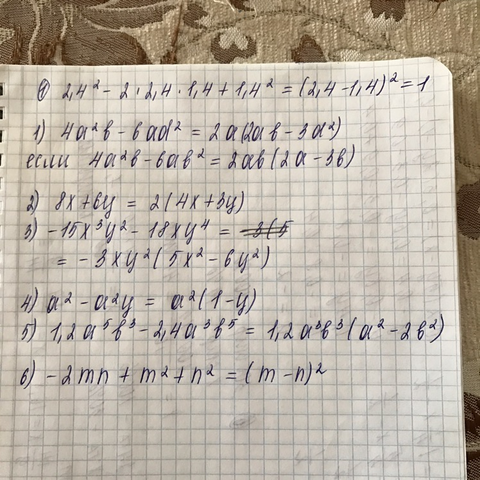 ① 2,4² - 2 · 2,4 · 1,4 + 1,4² = (2,4 - 1,4)² = 1
1) 4a²b - 6ad² = 2a(2ab - 3d²)
если 4a²b - 6ab² = 2ab(2a - 3b)
2) 8x + 6y = 2(4x + 3y)
3) -15x³y² - 18xy⁴ = -3(5
= -3xy²(5x² - 6y²)
4) a² - a²y = a²(1 - y)
5) 1,2a⁵b³ - 2,4a³b⁵ = 1,2a³b³(a² - 2b²)
6) -2mn + m² + n² = (m - n)²